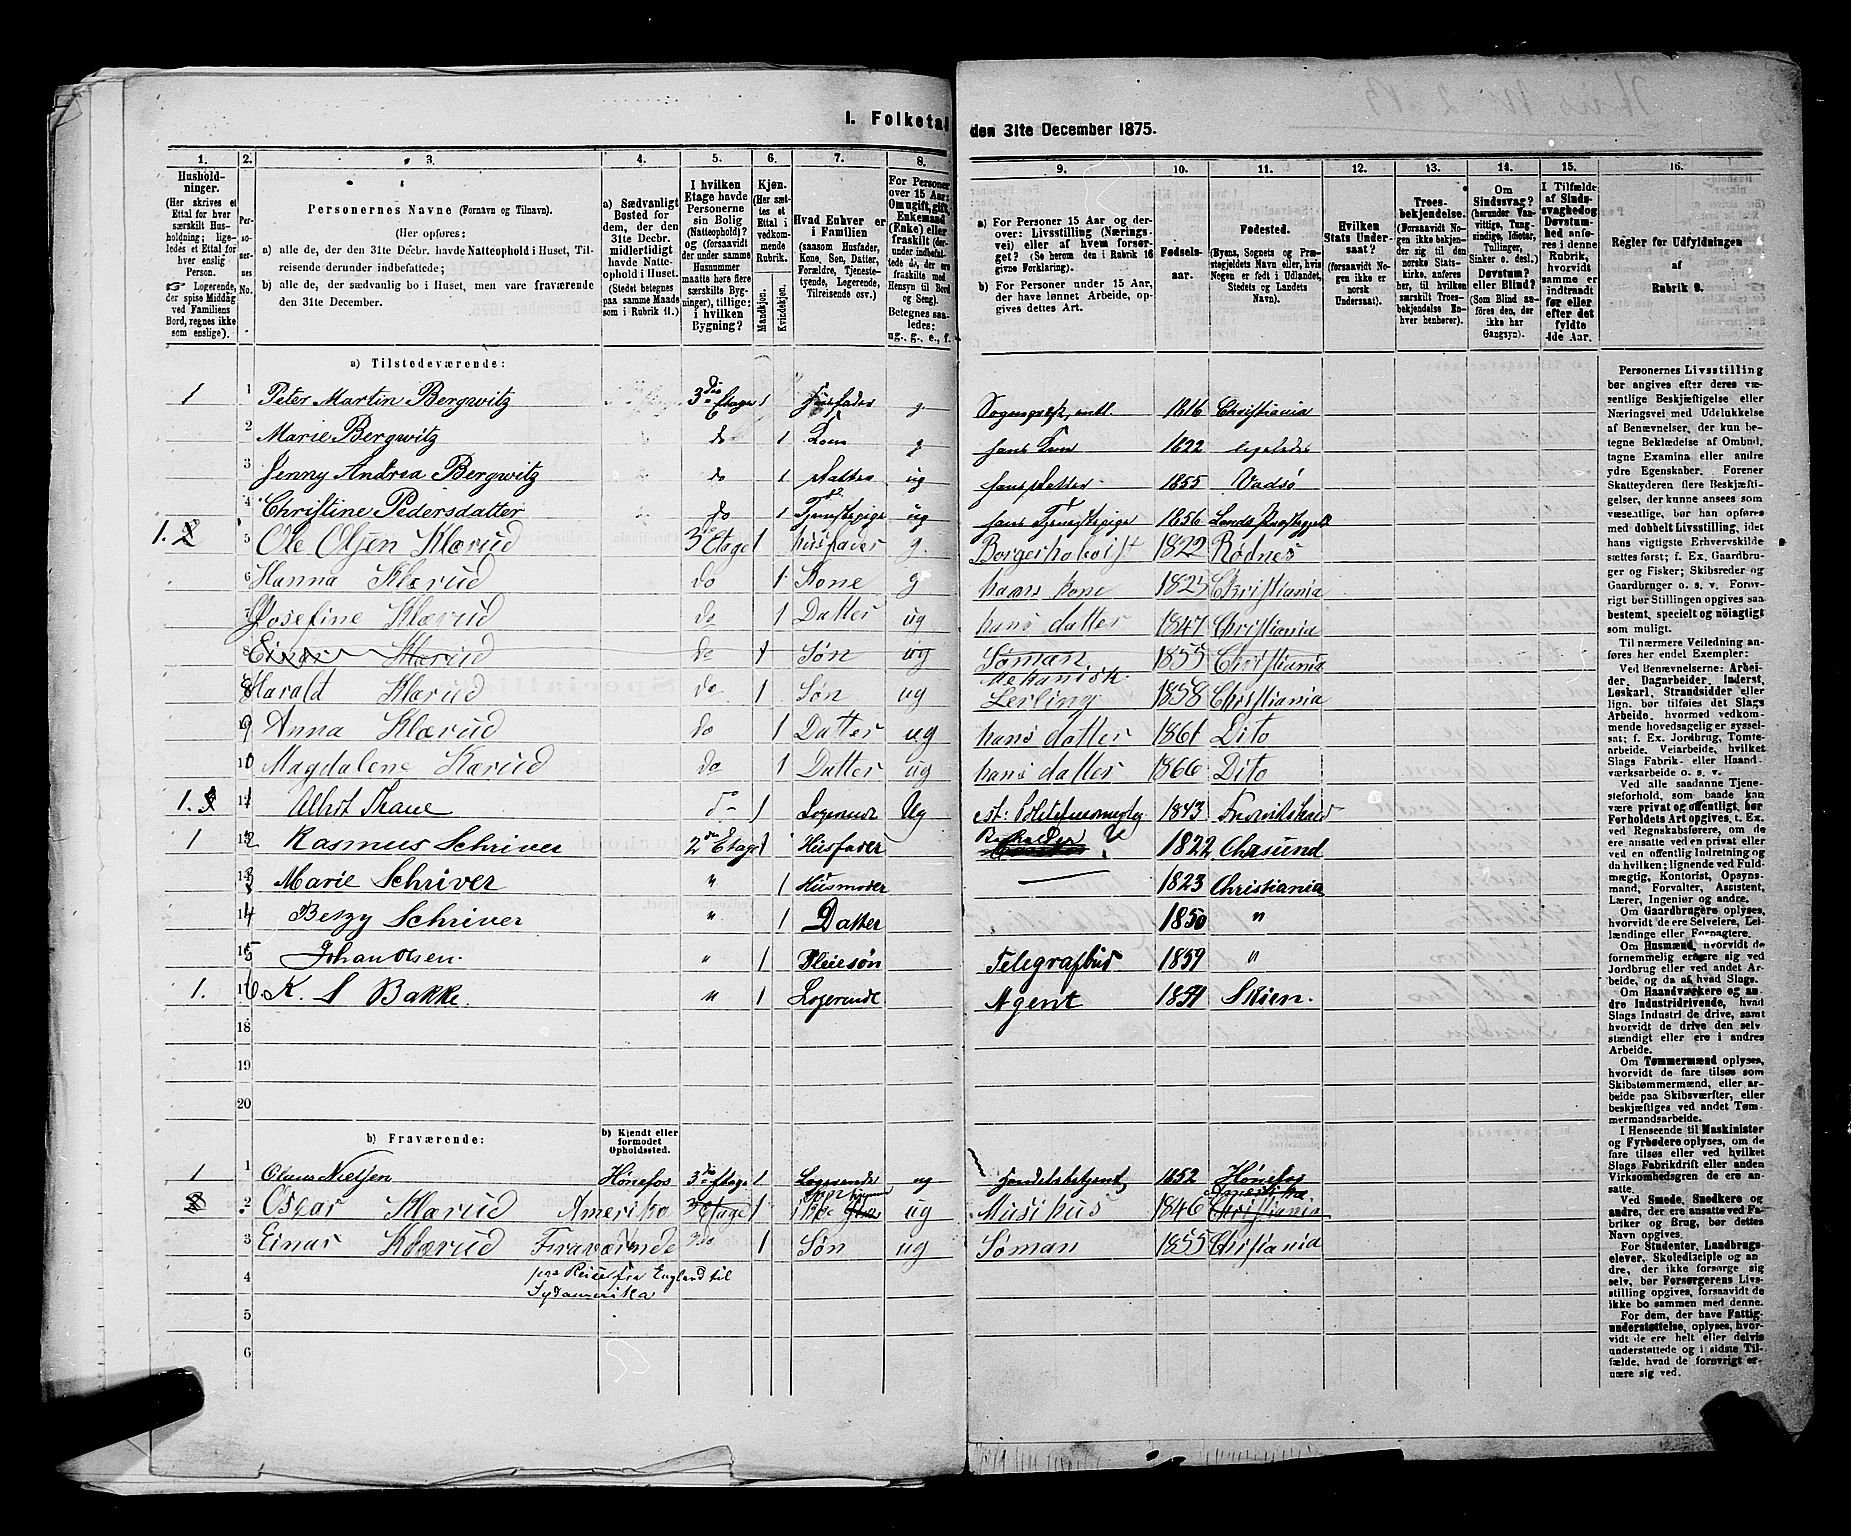 I. Folketal den 31te December 1875.
1. 2. 3. 4. 5. 6. 7. 8. 9. 10. 11. 12. 13. 14. 15. 16.
Hushold-
ninger.
(Her skrives et
Ettal for hver
særskilt Hus-
holdning; lige-
ledes et Ettal
for hver enslig
Person.
☞ Logerende,
der spise Middag
ved Familiens
Bord, regnes ikke
som enslige).
Per-
so-
ner-
nes
No.
Personernes Navne (Fornavn og Tilnavn).
(Her opføres:
a) alle de, der den 31te Decbr. havde Natteophold i Huset, Til-
reisende derunder indbefattede;
b) alle de, der sædvanlig bo i Huset, men vare fraværende
den 31te December.
a) Sædvanligt
Bosted for
dem, der den
31te Decbr.
midlertidigt
havde Natte-
ophold i Huset.
(Stedet betegnes
paa samme Maade
som i Rubrik 11.)
I hvilken
Etage havde
Personerne
sin Bolig
(Natteophold)?
og (forsaavidt
der under samme
Husnummer
maatte være flere
særskilte Byg-
ninger), tillige:
i hvilken
Bygning?
Kjøn.
(Her sæt-
tes et
Ettal i
vedkom-
mende
Rubrik.
Mandkjøn.
Kvindekjøn.
Hvad Enhver er
i Familien
(saasom Husfader,
Kone, Søn, Datter,
Forældre, Tjeneste-
tyende, Logerende,
Tilreisende osv.)
For Personer
over 15 Aar:
Om ugift, gift,
Enkemand
(Enke) eller
fraskilt
Hensyn til Bord
og Seng).
Betegnes saa-
ledes:
ug., g., e., f.
a) For Personer 15 Aar og der-
over: Livsstilling (Nærings-
vei) eller af hvem forsør-
get? (Se herom den i Rubrik 16
givne Forklaring).
b) For Personer under 15 Aar,
der have lønnet Arbeide, op-
gives dettes Art.
Fødsels-
aar.
Fødested.
(Byens, Sognets og Præ-
stegjeldets Navn eller, hvis
Nogen er født i Udlandet,
Stedets og Landets
Navn).
Hvilken
Stats Under-
saat?
(forsaavidt No-
gen ikke er
norsk
Undersaat).
Troes-
bekjendelse.
(Forsaavidt No-
gen ikke bekjen-
der sig til den
norske Stats-
kirke, anføres
her, til hvilket
særskilt Troes-
bekjendelse En-
hver henhører).
Om
Sindssvag?
(herunder Van-
vittige, Tung-
sindige, Idioter,
Tullinger,
Sinker o. desl.)
Døvstum?
eller Blind?
(Som Blind an-
føres den, der
ikke har
Gangsyn).
I Tilfælde
af Sinds-
svaghed og
Døvstum-
hed anføres
i denne
Rubrik,
hvorvidt
samme er
indtraadt
før eller
efter det
fyldte
4de Aar.
Regler for Udfyldningen
af
Rubrik 9.
a) Tilstedeværende:
1 1 Peter Martin Bergwitz 3die Etage 1 Husfader g. 1816 Christiania
2 Marie Bergwitz do 1 Kone g hans Kone 1822 ligeledes
3 Jenny Andrea Bergwitz do 1 Datter ug hans Datter 1855 Vadsö
4 Christine Pedersdatter do 1 Tjenestepige ug hans Tjenestepige 1856
1. 2 5 Ole Olsen Klærud 3 Etage 1 husfader g. 1822 Rödnes
6 Hanna Klærud do 1 Kone g hans kone 1825 Christiania
7 Josefine Klærud do 1 Datter ug hans datter 1847 Christiania
8 Einar Klærud do 1 Søn ug Søman 1855 Christiania
8 Harald Klærud do 1 Søn ug Mekanisk Lerling 1858 Christiania
9 Anna Klærud do 1 Datter ug hans datter 1861 Dito
10 Magdalene Klærud do 1 Datter ug hans datter 1866 Dito
1. 3 11 Albert Thaue do 1 Logerende Ug 1843 Fredrikshald
1 12 Rasmus Schriver 2den Etage 1 Husfader 1822
13 Marie Schriver " 1 Husmoder 1823 Christiania
14 Betzy Schriver " 1 Datter 1850 "
15 Johan Olsen " 1 Pleiesøn Telegrafbud 1859 "
1. 16 K. S Bakke " 1 Logerende Agent 1851 Skien.
18
19
20
b) Fraværende:
b) Kjendt eller
formodet
Opholdssted.
1 1 Olaus Nielsen Hönefos 3die Etage 1 Logerende ug Handelsbetjent 1852 Hönefos
2 Oscar Klærud Amerika 3 Etage 1 ug Musikus 1846 Christiania Amerika
3 Einar Klærud Fraværende do 1 Søn ug Søman 1855 Christiania
4 paa Reise fra England til
Sydamerika
5
6
Personernes Livsstilling
bør angives efter deres væ-
sentlige Beskjæftigelse eller
Næringsvei med Udelukkelse
af Benævnelser, der kun be-
tegne Beklædelse af Ombud,
tagne Examina eller andre
ydre Egenskaber. Forener
Skatteyderen flere Beskjæfti-
gelser, der kunne ansees som
væsentlige, bør han opføres
med dobbelt Livsstilling, idet
hans vigtigste Erhvervskilde
sættes først; f. Ex. Gaardbru-
ger og Fisker; Skibsreder og
Gaardbruger o. s. v. Forøv-
rigt bør Stillingen opgives saa
bestemt, specielt og nöiagtigt
som muligt.
Til nærmere Veiledning an-
føres her endel Exempler:
Ved Benævnelserne: Arbei-
der, Dagarbeider, Inderst,
Løskarl, Strandsidder eller
lign. bør tilføies det Slags
Arbeide, hvormed vedkom-
mende hovedsagelig er syssel-
sat; f. Ex. Jordbrug, Tomte-
arbeide, Veiarbeide, hvilket
Slags Fabrik- eller Haand-
værksarbeide o. s. v.
Ved alle saadanne Tjene-
steforhold, som baade kan
være privat og offentligt, bør
Forholdets Art opgives, t. Ex.
ved Regnskabsførere, om de
ere ansatte ved en privat eller
ved en offentlig Indretning og
da hvilken; lignende ved Fuld-
mægtig, Kontorist, Opsyns-
mand, Forvalter, Assistent,
Lærer, Ingeniør og andre.
Om Gaardbrugere oplyses,
hvorvidt de ere Selveiere, Lei-
lændinge eller Forpagtere.
Om Husmænd, hvorvidt de
fornemmelig ernære sig ved
Jordbrug eller ved andet Ar-
beide, og da af hvad Slags.
Om Haandværkere og an-
dre Industridrivende, hvad
Slags Industri de drive, samt
hvorvidt de drive den selv-
stændigt eller ere i andres
Arbeide.
Om Tømmermænd oplyses,
hvorvidt de fare tilsøs som
Skibstømmermænd, eller ar-
beide paa Skibsværfter, eller
beskjæftiges ved andet Tøm-
mermandsarbeide.
I Henseende til Maskinister
og Fyrbødere oplyses, om de
fare tilsøs eller ved hvilket
Slags Fabrikdrift eller anden
Virksomhedsgren de ere an-
satte.
Ved Smede, Snedkere og
andre, der ere ansatte ved Fa-
briker og Brug, bør dettes
Navn opgives.
For Studenter, Landbrugs-
elever, Skoledisciple og an-
dre, der ikke forsørge sig
selv, bør Forsørgerens Livs-
stilling opgives, forsaavidt de
ikke bo sammen med denne.
For dem, der have Fattig-
understøttelse, oplyses, hvor-
vidt de ere helt eller delvis
understøttede og i sidste Til-
fælde, hvad de forøvrigt er-
nære sig ved.